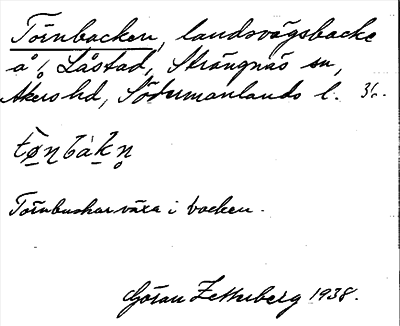 Törnbacken, landsvägsbacke
å Låstad, Strängnäs sn,
Åkers hd, Södermanlands l. 36.
tø̠ɳbàk̠n̥
Törnbuskar växa i backen.
Göran Zetterberg 1938.